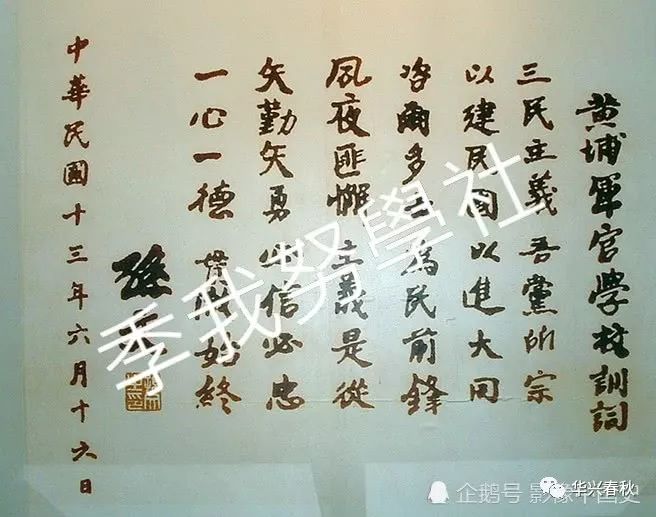 黄埔軍官学校訓詞
三民主義吾黨所宗
以建民國以進大同
咨爾多士為民前鋒
夙夜匪懈主義是從
矢勤矢勇必信必忠
一心一德貫徹始終
孫文
中華民國十三年六月十六日
季我努學社
企鹅号 影像中国史
华兴春秋